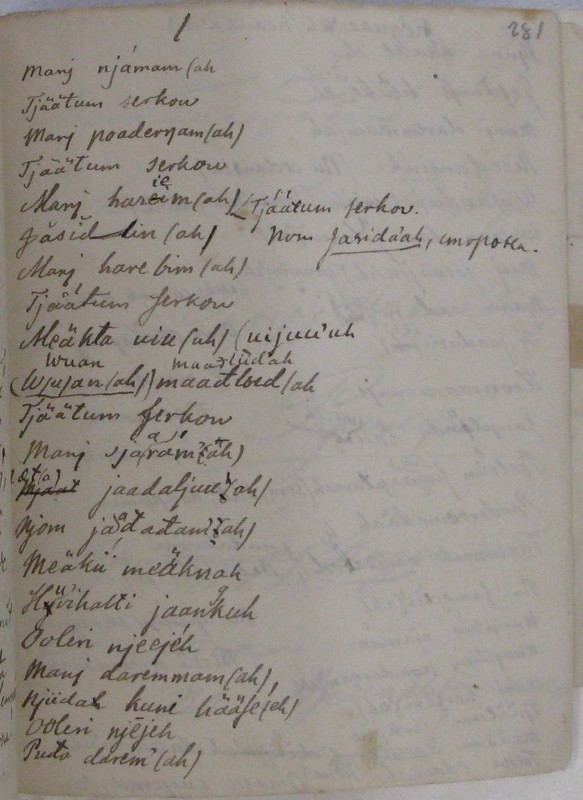 1
281
Manj njámam(ah
Tjäätum serkow
Manj poadernam(ah)
Tjäätum serkow
Manj harëim(ah) Tjäätum serkov.
ie
Jäsid lin(ah) Nom Jasidaah, сторожа.
Manj harebim(ah)
Tjäätum serkow
Meäkta uiu(uh) (uijuu'uh
Wuan maadliidah
(Wujan(ah)) maatloed(ah
Tjäätum serkow
Manj sjarám(ah)
jaadaljuu(ah)
Njom jadadam(ah)
Meäkü meäknah
Huvihatti jaankuh
Ooleri njeejéh
Manj daremmam(ah),
Njüdah kuni hääse(eh)
Ooleri njejeh
Puda darem(ah)